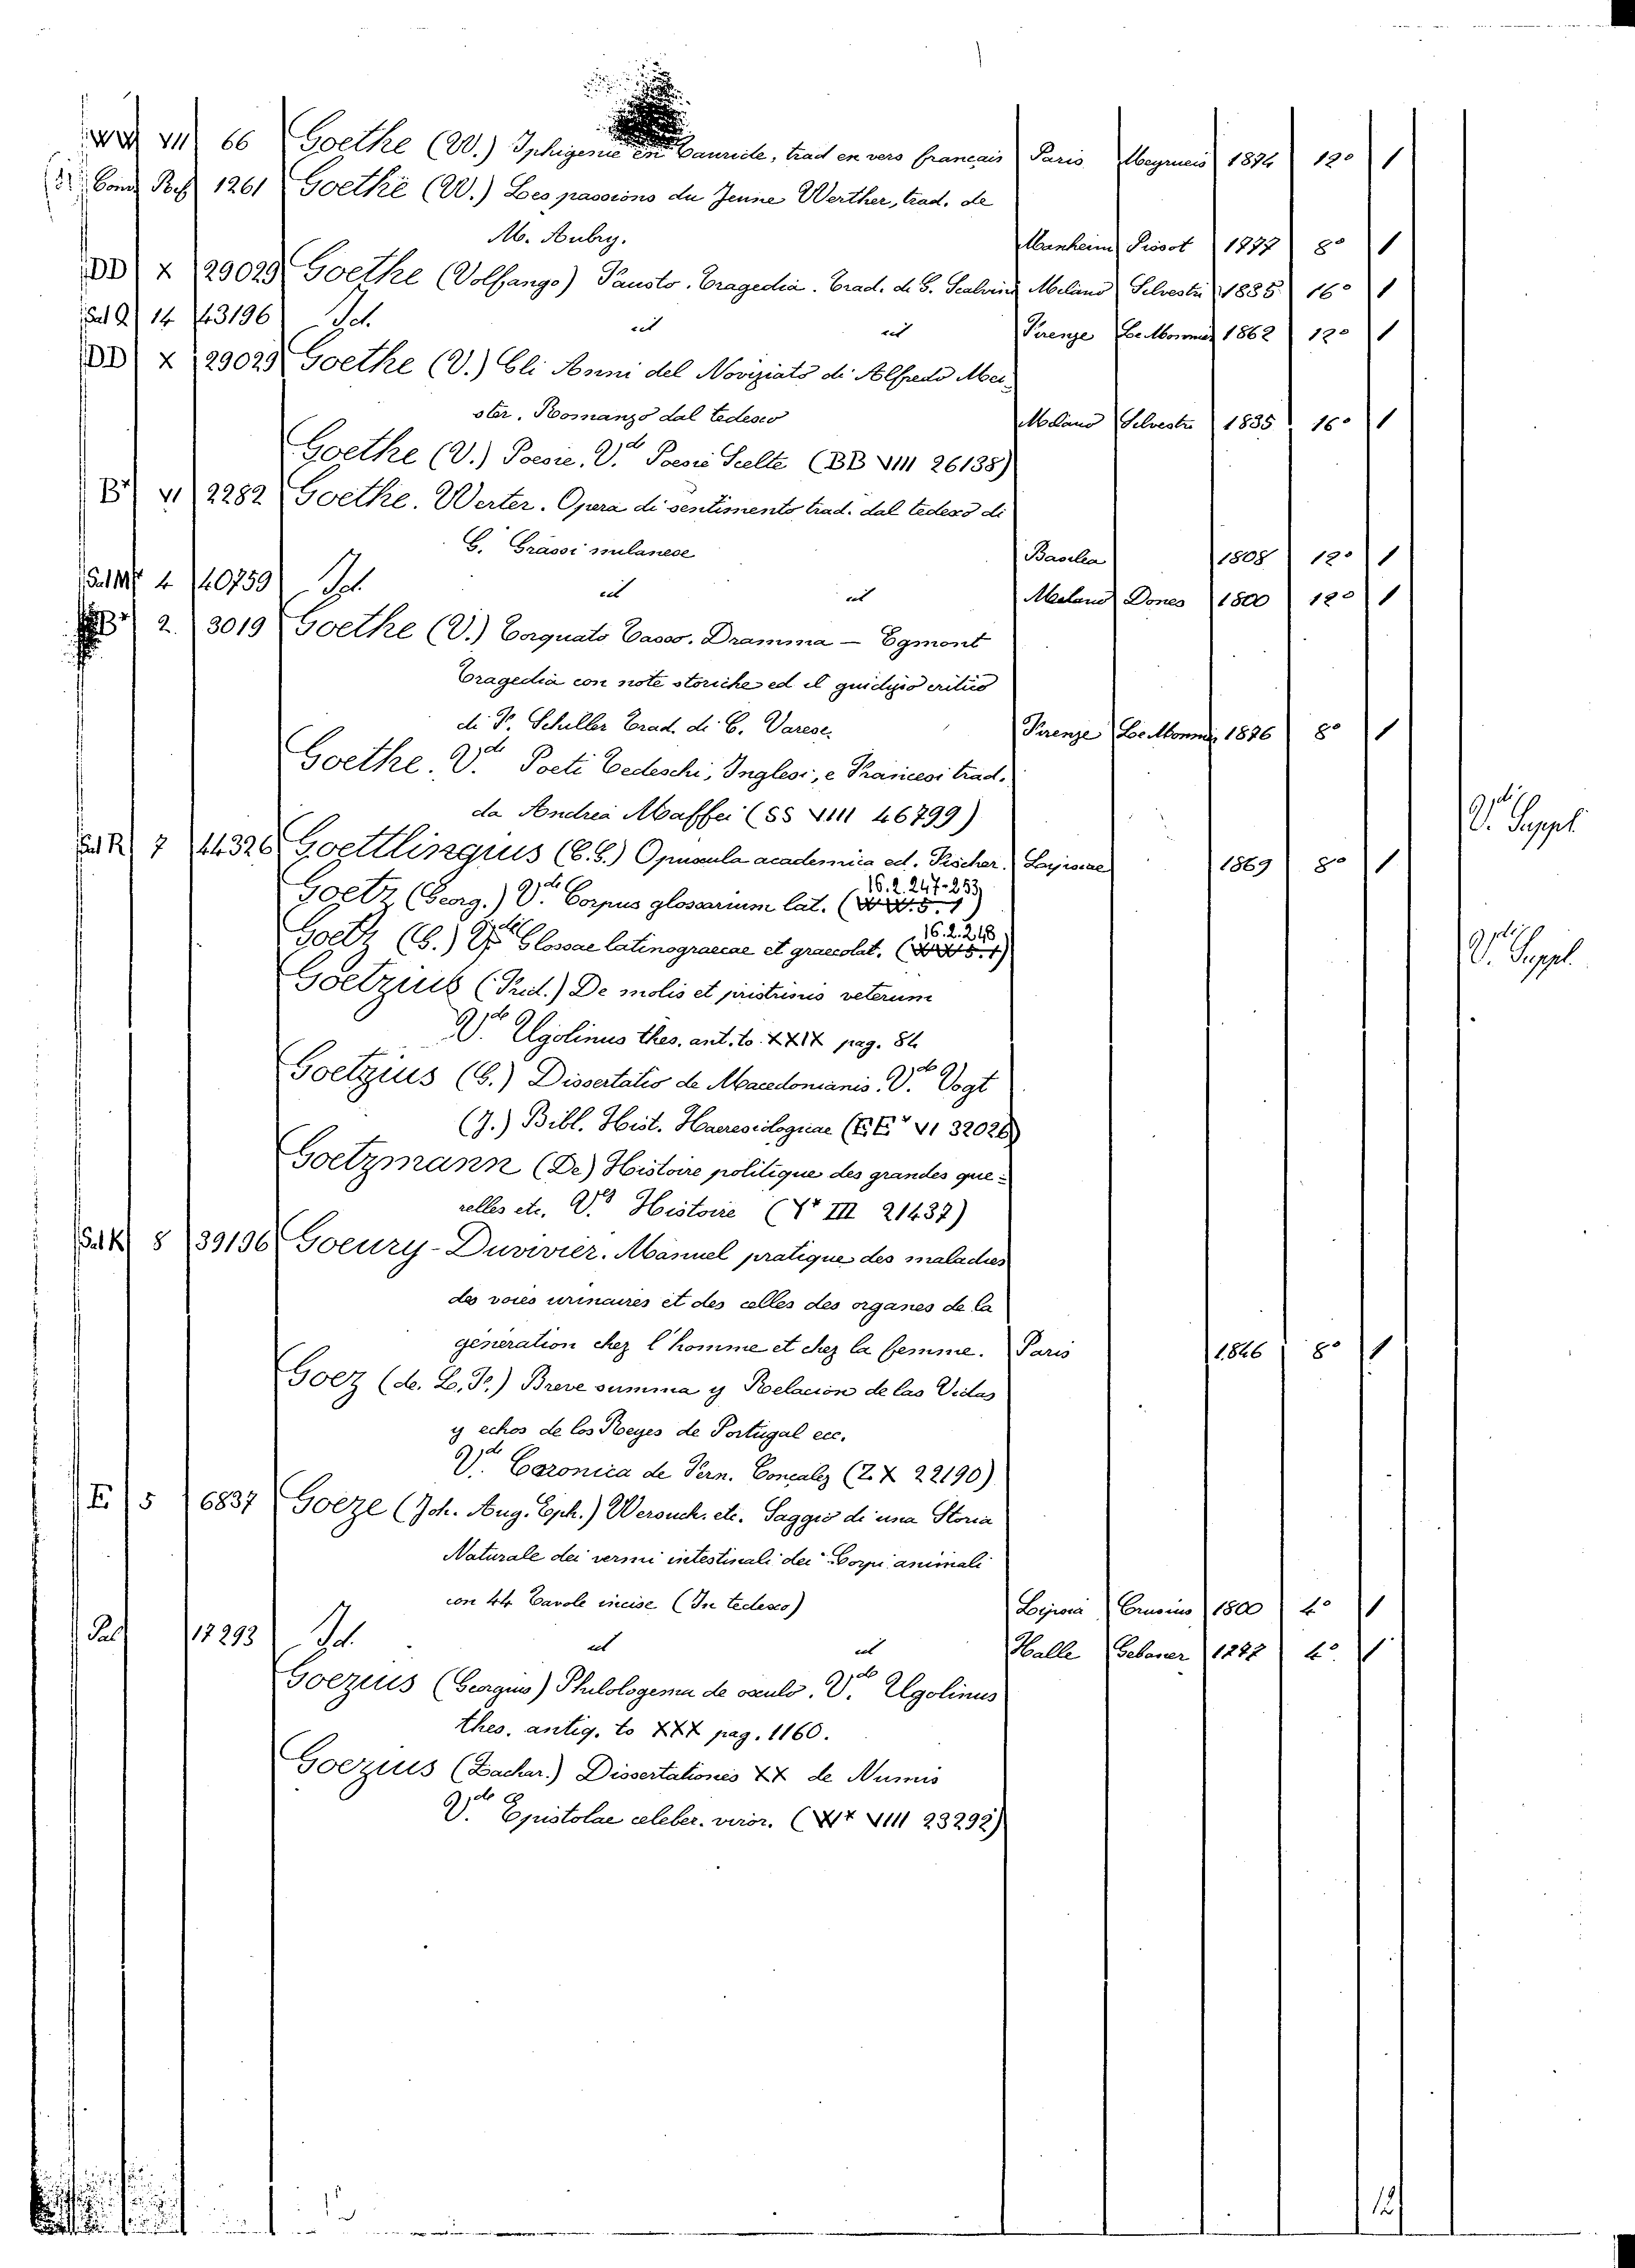 VII 66 Goethe (W.) Iphigenie en Tauride, trad en vers français Paris Meyrueis 1874 12° 1
Poss 1261 Goethe (W.) Les passions du Jeune Werther, trad. de
M. Aubry. Manheim Pissot 1777 8° 1
DD X 29029 Goethe (Volfango) Fausto. Tragedia. Trad. di G. Scalvini Milano Silvestri 1835 16° 1
Sal Q 14 43196 Id. id id Firenze Le Monnier 1862 12° 1
DD X 29029 Goethe (V.) Gli Anni del Noviziato di Alfredo Mei-
ster. Romanzo dal tedesco Milano Silvestri 1835 16° 1
Goethe (V.) Poesie. V.de Poesie Scelte (BB VIII 26138)
B+ VI 2282 Goethe. Werter. Opera di sentimento trad. dal tedesco di
G. Grassi milanese Basilea 1808 12° 1
Sal M 4 40759 Id. id id Milano Dones 1800 12° 1
2 3019 Goethe (V.) Torquato Tasso. Dramma — Egmont
Tragedia con note storiche ed il guidizio critico
di F. Schiller Trad. di C. Varese. Firenze Le Monnier 1876 8° 1
Goethe. V.de Poeti Tedeschi, Inglesi, e Francesi trad.
da Andrea Maffei (SS VIII 46799)
Sal R 7 44326 Goettlingius (C. G.) Opuscula academica ed. Fischer. Lipsiae 1869 8° 1
V.de Suppl.
Goetz (Georg.) V.de Corpus glossarium lat. (16.2.247-253)
Goetz (G.) V.de Glossae latinograecae et graecolat. (16.2.248)
V.de Suppl.
Goetzius (Frid.) De molis et pistrinis veterum
V.de Ugolinus thes. ant. to. XXIX pag. 84
Goetzius (G.) Dissertatio de Macedonianis. V.de Vogt
(J.) Bibl. Hist. Haeresiologicae (EE+ VI 32026)
Goetzmann (De) Histoire politique des grandes que-
relles etc. V.de Histoire (Y+ III 21437)
Sal K 8 39136 Goeury-Duvivier. Manuel pratique des maladies
des voies urinaires et des celles des organes de la
génération chez l'homme et chez la femme. Paris 1846 8° 1
Goez (de. L. F.) Breve summa y Relacion de las Vidas
y echos de los Reyes de Portugal ecc.
V.de Coronica de Fern. Concalez (Z. X 22190)
E 5 6837 Goeze (Joh. Aug. Eph.) Wersuch. etc. Saggio di una Storia
Naturale dei vermi intestinali dei Corpi animali
con 44 Tavole incise (In tedesco) Lipsia Crusius 1800 4° 1
Pal 17293 Id. id id Halle Gebauer 1
Goezius (Georgius) Philologema de osculo. V.de Ugolinus
thes. antig. to XXX pag. 1160.
Goezius (Zachar.) Dissertationes XX de Numis
V.de Epistolae celeber. viror. (VIII 23292)
12